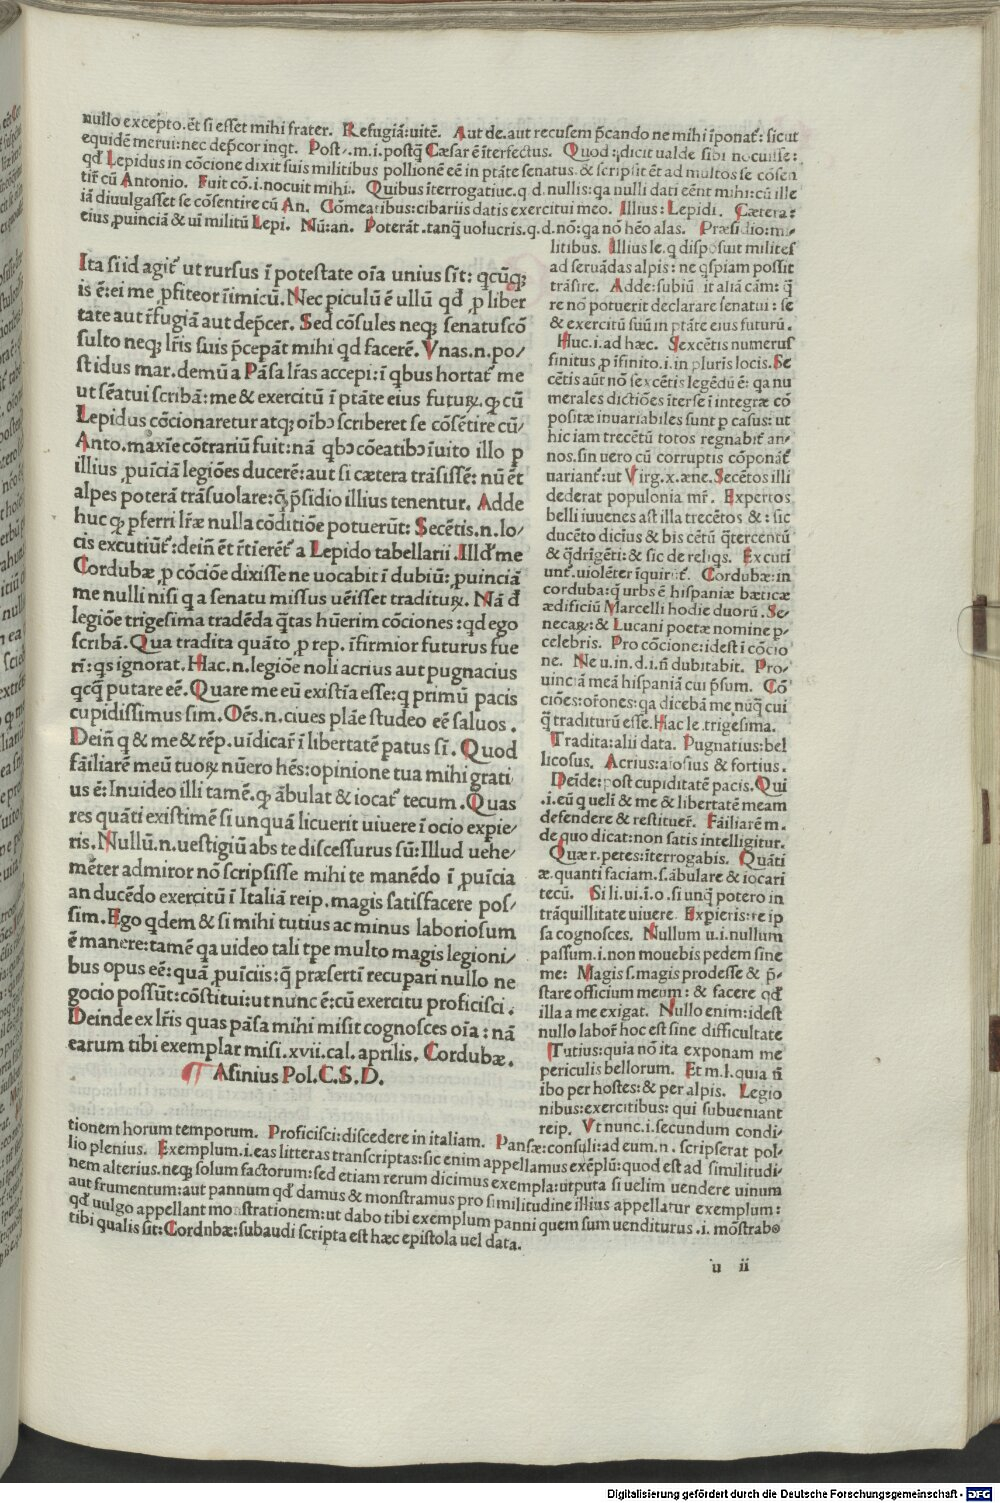 nullo excepto. ēt si esset mihi frater. Refugiā: uitē. Aut de. aut recusem p̄cando ne mihi īponat᷑: sicut
equidē merui: nec dep̄cor inqt. Post. m. i. postq̄ Cæsar ē īterfectus. Quod: dicit ualde sibi nocuisse:
qd̄ Lepidus in cōcione dixit suis militibus pollionē eē in ptāte senatus & scripsit ēt ad multos se cōsen
tir̄ cū Antonio. Fuit cō. i. nocuit mihi. Quibus īterrogatiue. q. d. nullis: qa nulli dati eēnt mihi: cū ille
iā diuulgasset se cōsentire cū An. Cōmeatibus: cibariis datis exercitui meo. Illius: Lepidi. Cætera:
eius ꝓuinciā & uī militū Lepi. Nū: an. Poterāt. tanq̄ uolucris. q. d. nō: qa nō hēo alas. Præsidio: mi-
Ita si id agit᷑ ut rursus ī potestate oīa unius sīt: qcūqꝫ
is ē: ei me ꝓfiteor īimicū. Nec piculū ē ullū qd̄ ꝓ liber
tate aut r̄fugiā aut dep̄cer. Sed cōsules neqꝫ senatuscō
sulto neqꝫ lr̄is suis p̄cepāt mihi qd facerē. Vnas. n. po/
st idus mar. demū a Pāsa lr̄as accepi: ī qbus hortat᷑ me
ut sēatui scribā: me & exercitū ī ptāte eius futuꝝ. qꝫ cū
Lepidus cōcionaretur atqꝫ oībꝰ scriberet se cōsētire cū
Anto. maxīe cōtrariū fuit: nā qbꝰ cōeatibꝰ īuito illo p
illius ꝓuīciā legiōes ducerē: aut si cætera trāsissē: nū ēt
alpes poterā trāsuolare: q̄ p̄sidio illius tenentur. Adde
huc qꝫ pferri lr̄æ nulla cōditiōe potuerūt: Secētis. n. lo/
cis excutiūt᷑: deīn̄ ēt r̄tierēt᷑ a Lepido tabellarii. Illd̄ me
Cordubæ ꝓ cōciōe dixisse ne uocabit ī dubiū: ꝓuinciā
me nulli nisi q a senatu missus uēisset tradituꝝ. Nā d̄
legiōe trigesima tradēda q̄tas hūerim cōciones: qd ego
scribā. Qua tradita quāto ꝓ rep. īfirmior futurus fue
rī: qs ignorat. Hac. n. legiōe noli acrius aut pugnacius
qcq̄ putare eē. Quare me eū existīa esse: q primū pacis
cupidissimus sim. Oēs. n. ciues plāe studeo eē saluos.
Dein̄ q & me & rēp. uīdicar̄ ī libertatē patus sī. Quod
fāiliarē meū tuoꝝ nūero hēs: opinione tua mihi grati
us ē: Inuideo illi tamē. qꝫ ābulat & iocat᷑ tecum. Quas
res quāti existimē si unquā licuerit uiuere ī ocio expie/
ris. Nullū. n. uestigiū abs te discessurus sū: Illud uehe/
mēter admiror nō scripsisse mihi te manēdo ī ꝓuīcia
an ducēdo exercitū ī Italiā reip. magis satisfacere pos/
sim. Ego qdem & si mihi tutius ac minus laboriosum
ē manere: tamē qa uideo tali tpe multo magis legioni/
bus opus eē: quā ꝓuīciis: q̄ præsertī recupari nullo ne
gocio possūt: cōstitui: ut nunc ē: cū exercitu proficisci.
Deinde ex lr̄is quas pāsa mihi misit cognosces oīa: nā
earum tibi exemplar misi. xvii. cal. aprilis. Cordubæ.
¶ Asinius Pol. C. S. D.
litibus. Illius le. q disposuit milites
ad seruādas alpis: ne qspiam possit
trāsire. Adde: subiū it aliā cām: q̄
re nō potuerit declarare senatui: se
& exercitū suū in ptāte eius futurū.
Huc. i. ad hæc. Sexcētis numerus
finitus ꝓ īfinito. i. in pluris locis. Se
cētis aūt nō sexcētis legēdū ē: qa nu
merales dictiōes īterse ī integræ cō
positæ inuariabiles sunt p casus: ut
hic iam trecētū totos regnabit᷑ an-
nos. sin uero cū corruptis cōponāt᷑
uariant᷑: ut Virg. x. æne. Secētos illi
dederat populonia mr̄. Expertos
belli iuuenes ast illa trecētos &: sic
ducēto dicius & bis cētū q̄tercentū
& q̄drigēti: & sic de reliqs. Excuti
unt᷑. uiolēter īquirūt᷑. Cordubæ: in
corduba: q̄ urbs ē hispaniæ bæticæ
ædificiū Marcelli hodie duorū. Se-
necaꝝ: & Lucani poetæ nomine p-
celebris. Pro cōcione: idest ī cōcio
ne. Ne u. in. d. i. n̄ dubitabit. Pro/
uinciā meā hispaniā cui p̄sum. Cō
ciōes: or̄ones: qa dicebā me nuq̄ cui
q̄ traditurū esse. Hac le. trigesima.
Tradita: alii data. Pugnatius: bel
licosus. Acrius: aīosius & fortius.
Deīde: post cupiditatē pacis. Qui
.i. eū q uelī & me & libertatē meam
defendere & restituer̄. Fāiliarē m.
de quo dicat: non satis intelligitur.
Quær. petes: īterrogabis. Quāti
æ. quanti faciam. s. ābulare & iocari
tecū. Si li. ui. ī. o. si unq̄ potero in
trāquillitate uiuere. Expieris: re ip
sa cognosces. Nullum u. i. nullum
passum. i. non mouebis pedem sine
me: Magis s. magis prodesse & p̄-
stare officium meum: & facere qd̄
illa a me exigat. Nullo enim: idest
nullo labor̄ hoc est sine difficultate
Tutius: quia nō ita exponam me
periculis bellorum. Et m. l. quia n̄
ibo per hostes: & per alpis. Legio
nibus: exercitibus: qui subueniant
reip. Vt nunc. i. secundum condi/
tionem horum temporum. Proficisci: discedere in italiam. Pansæ: consuli: ad eum. n. scripserat pol-
lio plenius. Exemplum. i. eas litteras transcriptas: sic enim appellamus exēplū: quod est ad similitudi/
nem alterius. neqꝫ solum factorum: sed etiam rerum dicimus exempla: utputa si uelim uendere uinum
aut frumentum: aut pannum qd̄ damus & monstramus pro similitudine illius appellatur exemplum:
qd̄ uulgo appellant monstrationem: ut dabo tibi exemplum panni quem sum uenditurus. i. mōstrabo
tibi qualis sit: Cordubæ: subaudi scripta est hæc epistola uel data.
u ii
Digitalisierung gefördert durch die Deutsche Forschungsgemeinschaft - DFG